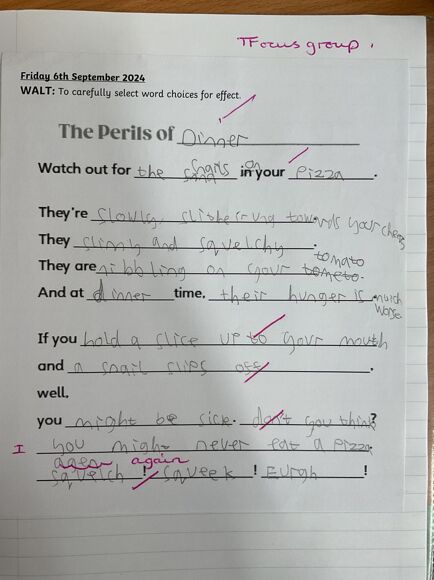 TFocus group.
Friday 6th September 2024
WALT: To carefully select word choices for effect.
The Perils of Dinner
Watch out for the snails on in your Pizza.
They're slowly, slitherung towards your cheese
They slimy and squelchy.
tomato
They are nibbling on your tometo.
And at dinner time, their hunger is much
worse.
If you hold a slice up to your mouth
and a snail slips off.
well,
you might be sick. don't you think?
I you might never eat a Pizza
agen again
squelch! squeek! Eurgh!